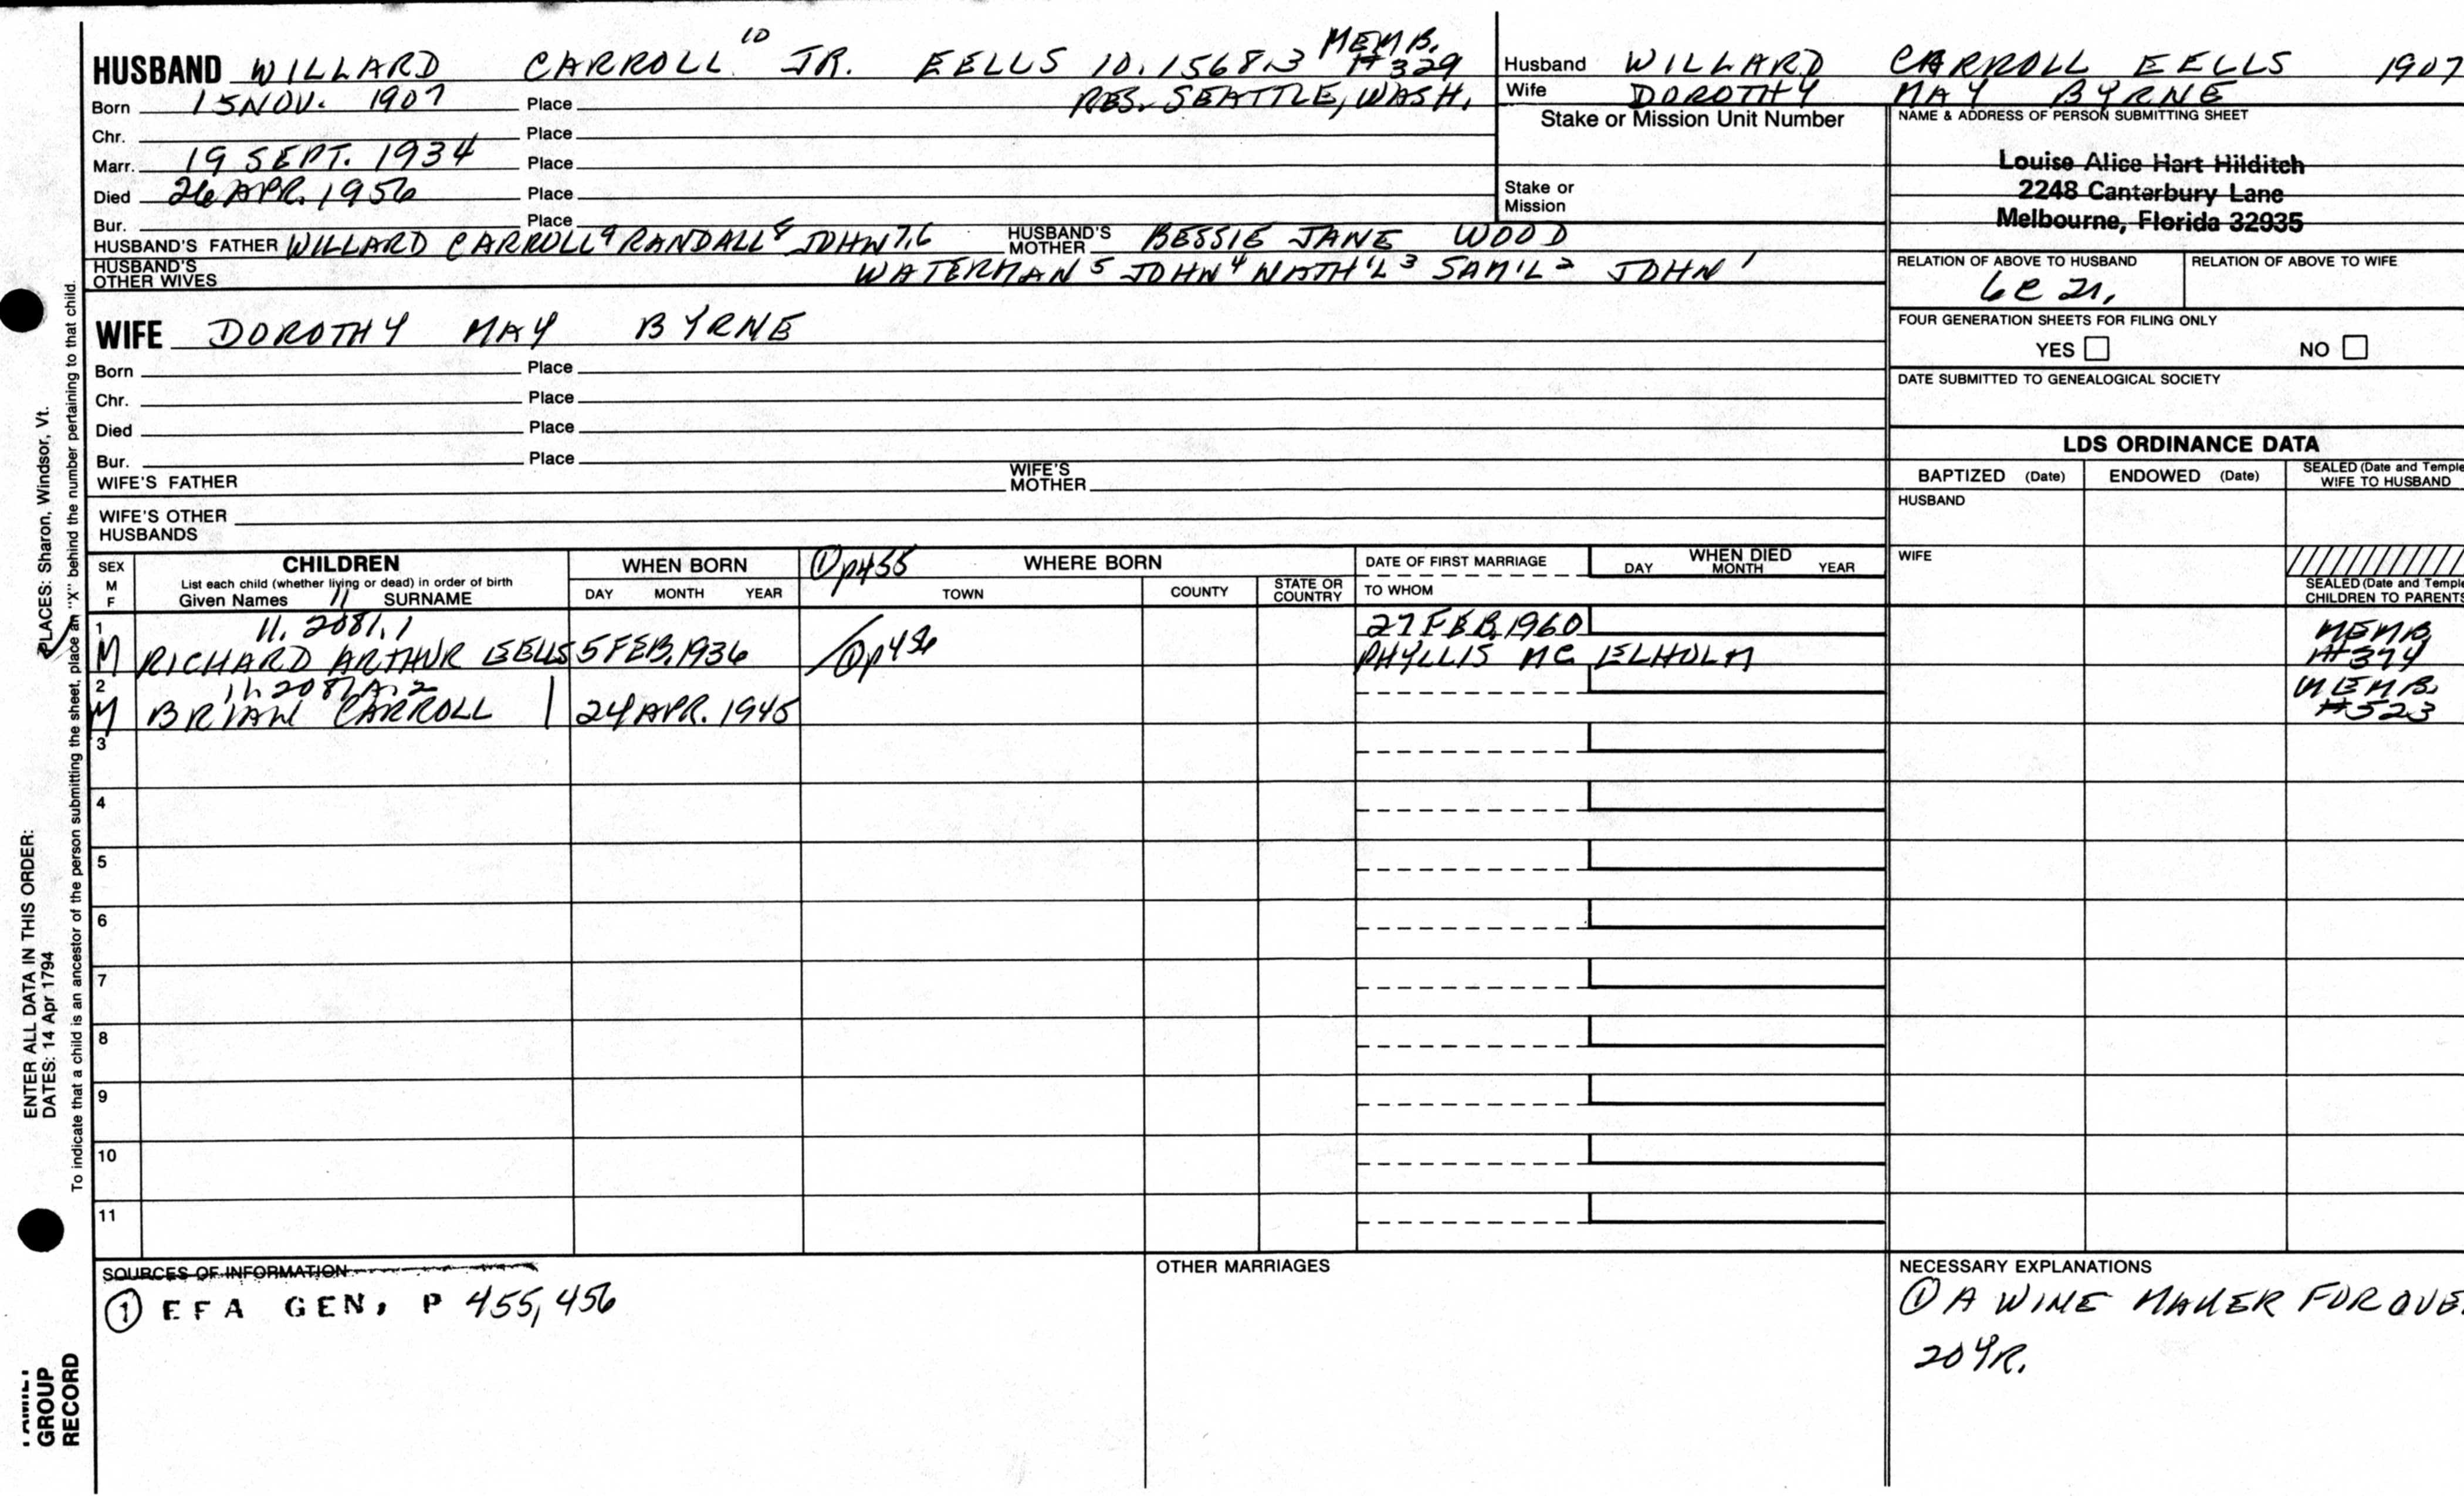 HUSBAND WILLARD CARROLL 10 JR. EELLS 10.1568.3 MEMB. #329
Born 15 NOV. 1907 Place RES. SEATTLE, WASH.
Chr. Place
Marr. 19 SEPT. 1934 Place
Died 26 APR. 1956 Place
Bur. Place
HUSBAND'S FATHER WILLARD CARROLL 9 RANDALL 8 JOHN 7,6 HUSBAND'S MOTHER BESSIE JANE WOOD
HUSBAND'S OTHER WIVES WATERMAN 5 JOHN 4 NATH'L 3 SAM'L 2 JOHN 1
Husband WILLARD CARROLL EELLS 1907
Wife DOROTHY MAY BYRNE
Stake or Mission Unit Number
Stake or
Mission
NAME & ADDRESS OF PERSON SUBMITTING SHEET
Louise Alice Hart Hilditch
2248 Cantarbury Lane
Melbourne, Florida 32935
RELATION OF ABOVE TO HUSBAND RELATION OF ABOVE TO WIFE
FOUR GENERATION SHEETS FOR FILING ONLY
YES NO
DATE SUBMITTED TO GENEALOGICAL SOCIETY
WIFE DOROTHY MAY BYRNE
Born Place
Chr. Place
Died Place
Bur. Place
WIFE'S FATHER WIFE'S MOTHER
WIFE'S OTHER
HUSBANDS
LDS ORDINANCE DATA
BAPTIZED (Date) ENDOWED (Date) SEALED (Date and Temple
WIFE TO HUSBAND
HUSBAND
WIFE
SEALED (Date and Temple
CHILDREN TO PARENTS
SEX
M
F
CHILDREN
List each child (whether living or dead) in order of birth
Given Names 11 SURNAME
WHEN BORN
DAY MONTH YEAR
① p455 WHERE BORN
TOWN COUNTY STATE OR COUNTRY
DATE OF FIRST MARRIAGE
TO WHOM
WHEN DIED
DAY MONTH YEAR
1 11. 2081.1 27 FEB. 1960 MEMB.
M RICHARD ARTHUR EELLS 5 FEB. 1936 ① p456 PHYLLIS MC ELHOLM #374
2 MEMB.
M BRIAN CARROLL 24 APR. 1945 #523
3
4
5
6
7
8
9
10
11
SOURCES OF INFORMATION
① EFA GEN, P 455, 456
OTHER MARRIAGES
NECESSARY EXPLANATIONS
① A WINE MAKER FOR OVE
20 YR.
ENTER ALL DATA IN THIS ORDER:
DATES: 14 Apr 1794
PLACES: Sharon, Windsor, Vt.
To indicate that a child is an ancestor of the person submitting the sheet, place an "X" behind the number pertaining to that child.
FAMILY
GROUP
RECORD